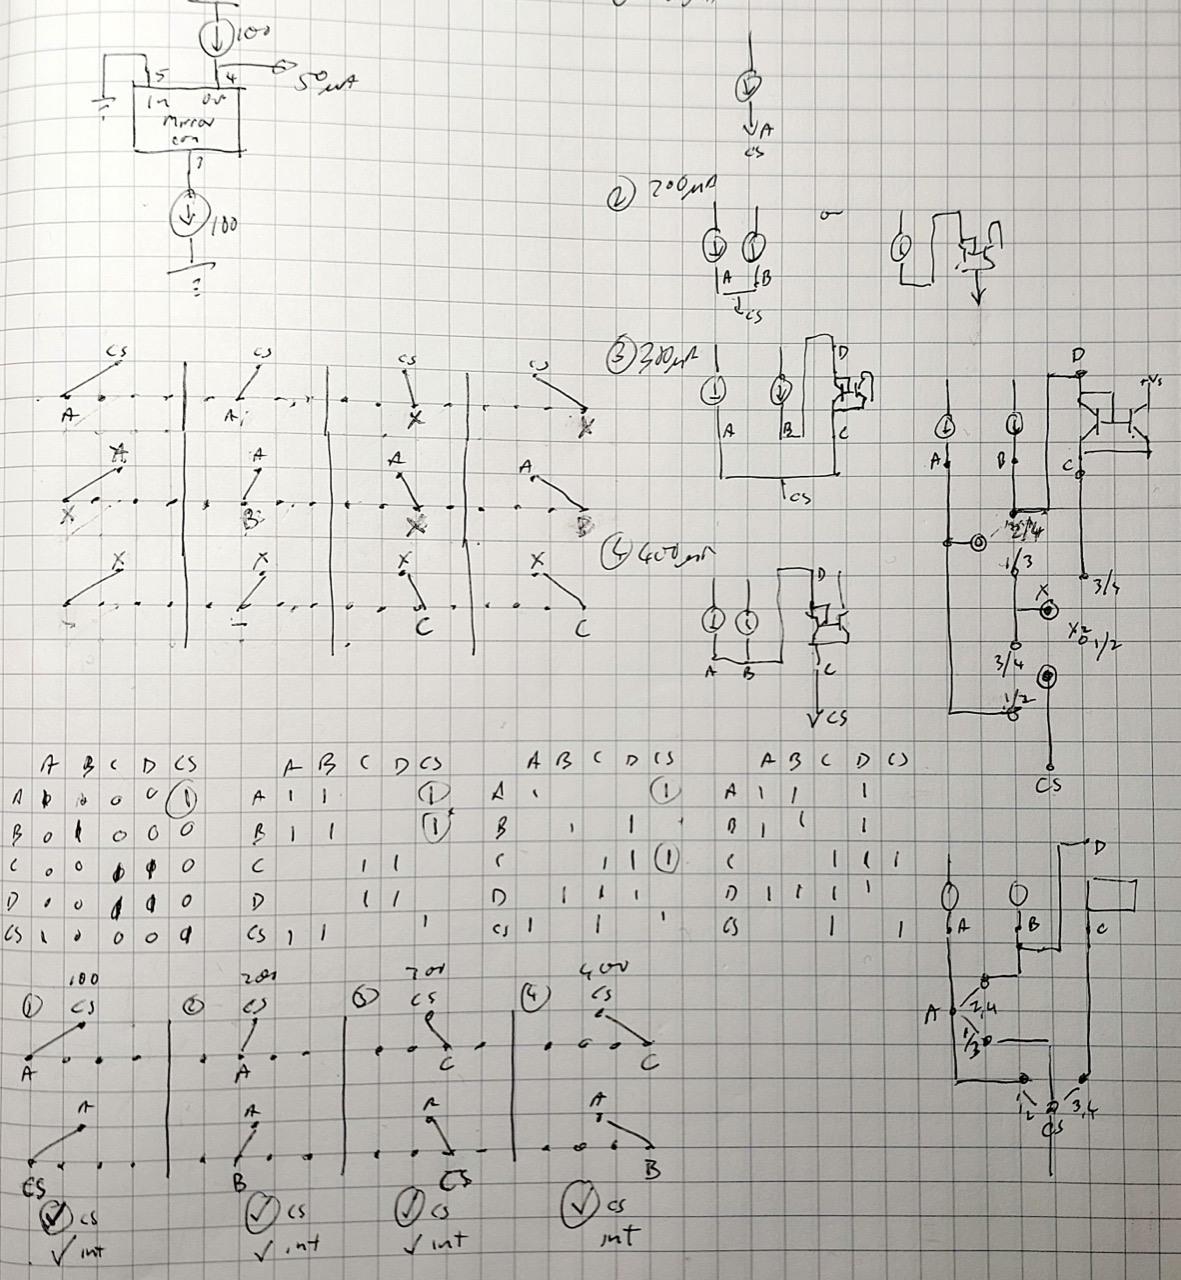 100
5 4 50µA
In
Mirror
com
3
100
A
CS
② 200µA
or
A B
CS
CS CS CS CS
③ 300µA
D
A A X X
A B C
CS
D +Vs
A B C
A A A A
X B X B
④ 400µA
D
2/4
1/3
3/4
X X X X
- - C C
A B C
CS
X
1/2
3/4
1/2
CS
A B C D CS A B C D CS A B C D CS A B C D CS
A 1 1 0 0 ① A 1 1 ① A 1 ① A 1 1 1
B 0 1 0 0 0 B 1 1 ① B 1 1 B 1 1 1
C 0 0 1 1 0 C 1 1 C 1 1 ① C 1 1 1
D 0 0 1 1 0 D 1 1 D 1 1 1 1 D 1 1 1 1
CS 1 0 0 0 1 CS 1 1 1 CS 1 1 1 CS 1 1
D
A B C
100 200 300 400
① CS ② CS ③ CS ④ CS
A 2,4
1/3
A A C C
1,2 3,4
CS
A A A A
CS B CS B
✓ CS ✓ CS ✓ CS ✓ CS
✓ int ✓ int ✓ int int